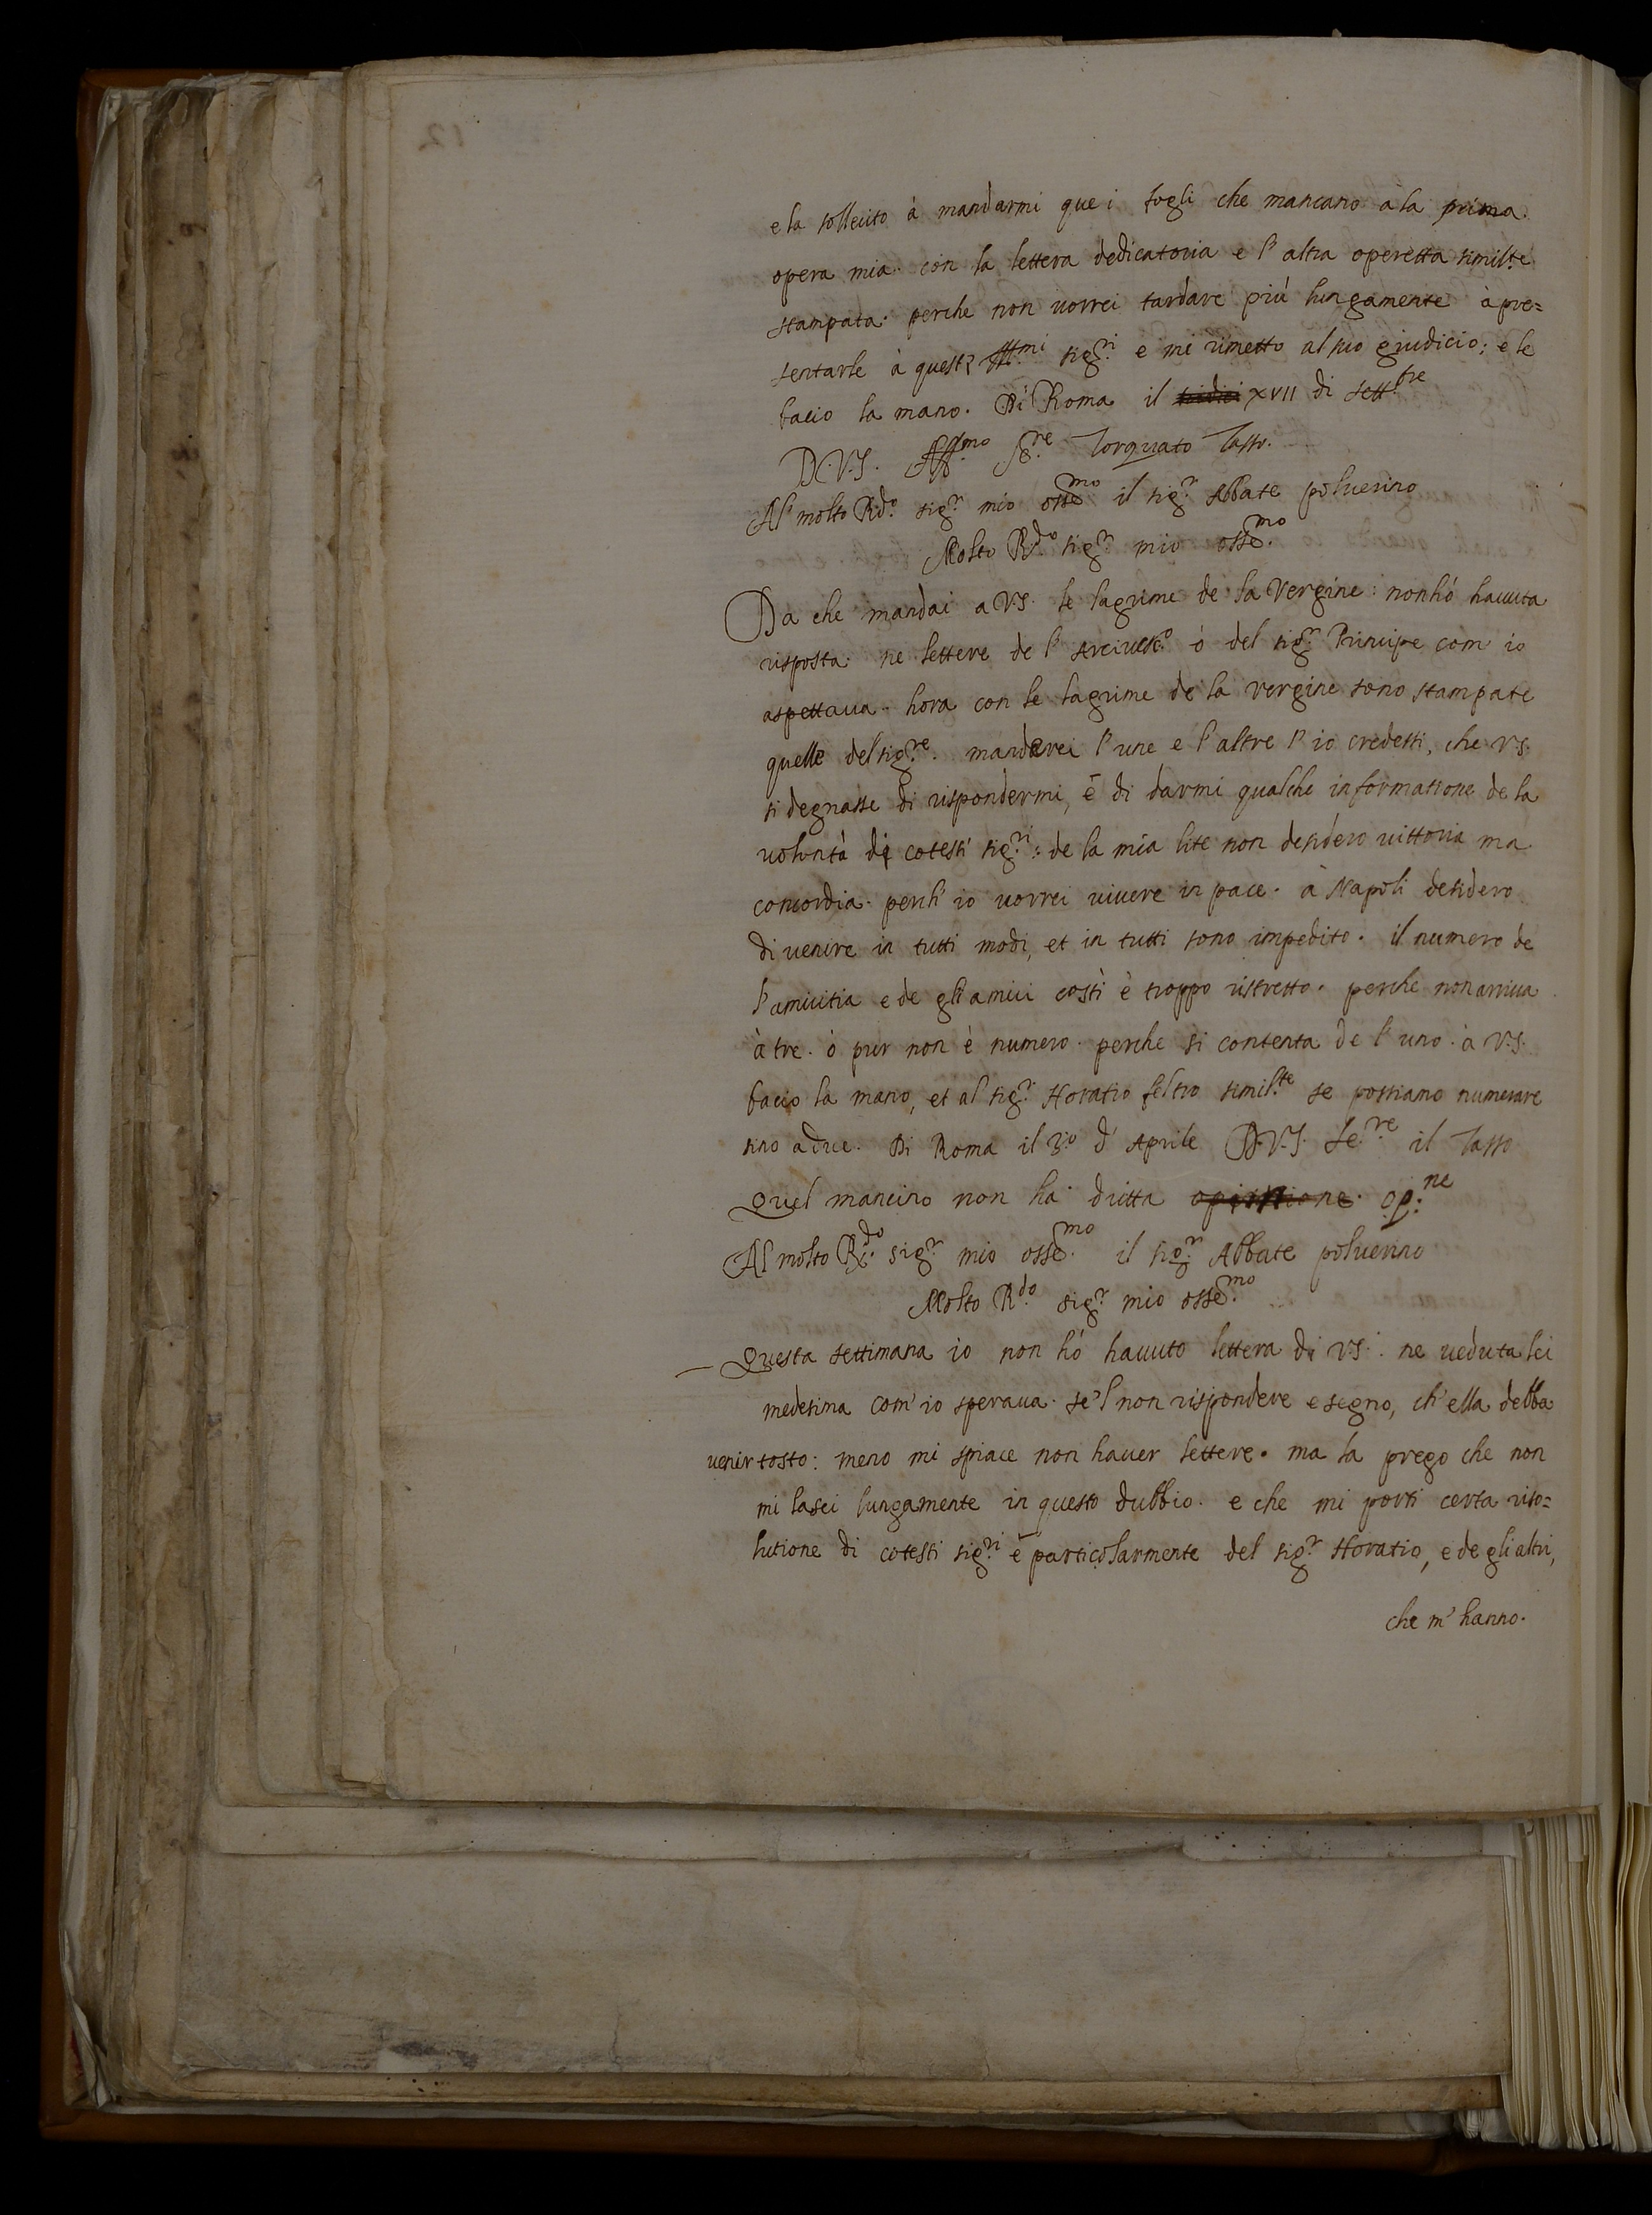 e la sollecito à mandarmi que i fogli che mancano à la prima
opera mia con la lettera dedicatoria e l'altra operetta similte
stampata. perche non uorrei tardare piú lungamente à pre=
sentarle à questi Illmi sigri e mi rimetto al suo giudicio; e le
bacio la mano. Di Roma il sedici XVII di settbre
D.V.S. Affmo Sre Torquato Tasso.
Al molto Rdo sigr mio ossmo il sigr Abbate polverino
Molto Rdo sigr mio ossmo
Da che mandai a V.S. le lagrime de la Vergine: non hó hauuta
risposta ne lettere de l'Arciuesco ó del sigr Principe com'io
aspettaua. hora con le lagrime de la vergine sono stampate
quelle del sigre. manderei l'une e l'altre s'io credessi, che V.S.
si degnasse di rispondermi, é di darmi qualche informatione de la
volontà di cotesti sigri: de la mia lite non desidero vittoria ma
concordia. perch'io uorrei uiuere in pace. à Napoli desidero
di uenire in tutti modi, et in tutti sono impedito. il numero de
l'amicitia e de gli amici costì è troppo ristretto. perche non arriua
à tre. ó pur non è numero. perche si contenta de l'uno. à V.S.
bacio la mano, et al sigr Horatio feltro similte se possiamo numerare
sino a due. Di Roma il 3o d'Aprile D.V.S. Sere il Tasso
Quel mancino non ha dritta opinione. opne
Al molto Rdo sigr mio ossemo il sigr Abbate poluerino
Molto Rdo sigr mio ossemo
Questa settimana io non hó hauuto lettera di V.S. ne ueduta lei
medesima com'io speraua. se'l non rispondere e segno, ch'ella debba
uenir tosto: meno mi spiace non hauer lettere. ma la prego che non
mi lasci lungamente in questo dubbio. e che mi porti certa riso=
lutione di cotesti sigri é particolarmente del sigr Horatio, e de gli altri,
che m'hanno.